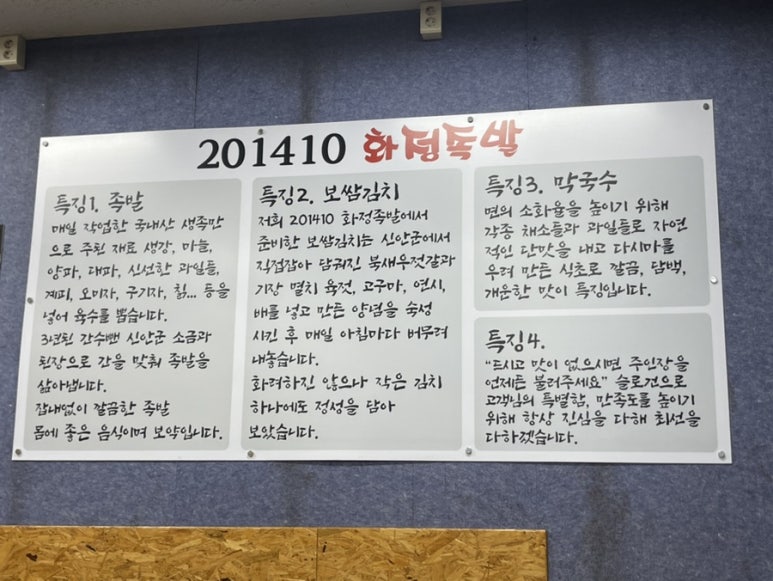 201410 화정족발
특징1. 족발
매일 작업한 국내산 생족만
으로 주된 재료 생강, 마늘,
양파, 대파, 신선한 과일들,
계피, 오미자, 구기자, 칡... 등을
넣어 육수를 뽑습니다.
3년된 간수뺀 신안군 소금과
된장으로 간을 맞춰 족발을
삶아냅니다.
잡내없이 깔끔한 족발
몸에 좋은 음식이며 보약입니다.
특징2. 보쌈김치
저희 201410 화정족발에서
준비한 보쌈김치는 신안군에서
직접잡아 담궈진 북새우젓갈과
기장 멸치 육젓, 고구마, 연시,
배를 넣고 만든 양념을 숙성
시킨 후 매일 아침마다 버무려
내놓습니다.
화려하진 않으나 작은 김치
하나에도 정성을 담아
보았습니다.
특징3. 막국수
면의 소화율을 높이기 위해
각종 채소들과 과일들로 자연
적인 단맛을 내고 다시마를
우려 만든 식초로 깔끔, 담백,
개운한 맛이 특징입니다.
특징4.
"드시고 맛이 없으시면 주인장을
언제든 불러주세요" 슬로건으로
고객님의 특별함, 만족도를 높이기
위해 항상 진심을 다해 최선을
다하겠습니다.